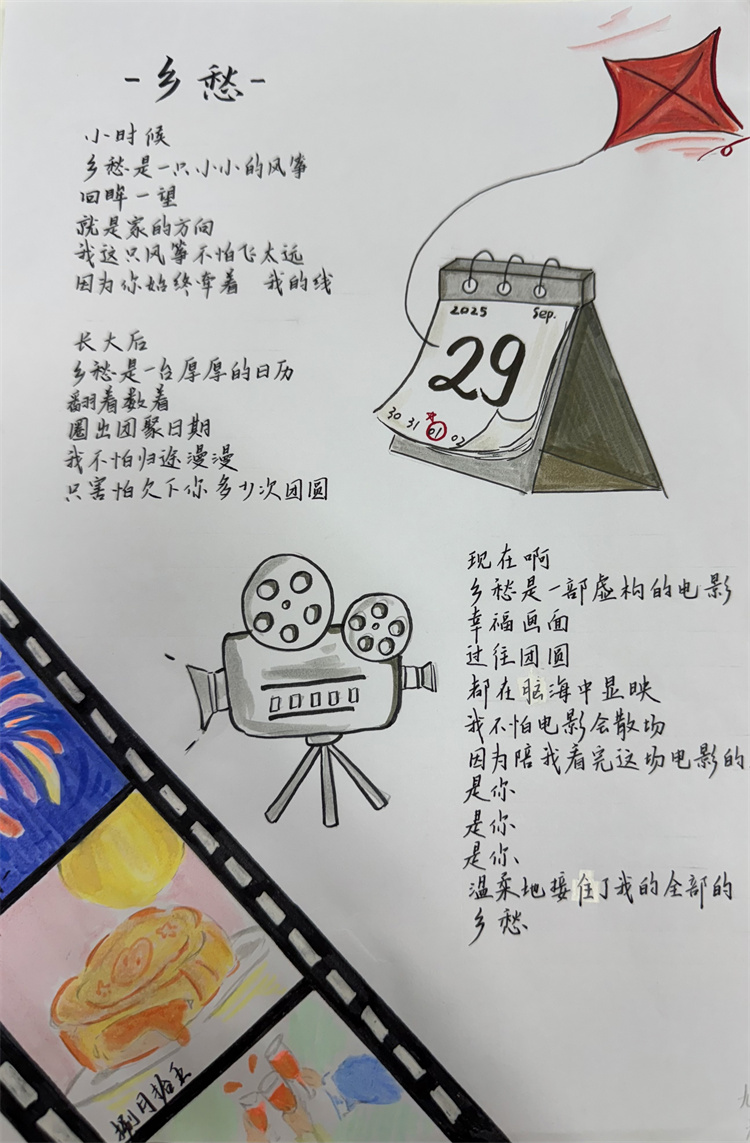 -乡愁-
小时候
乡愁是一只小小的风筝
回眸一望
就是家的方向
我这只风筝不怕飞太远
因为你始终牵着 我的线
长大后
乡愁是一台厚厚的日历
翻着数着
圈出团聚日期
我不怕归途漫漫
只害怕欠下你多少次团圆
2025 Sep.
29
30 31 01 02
现在啊
乡愁是一部虚构的电影
幸福画面
过往团圆
都在脑海中显映
我不怕电影会散场
因为陪我看完这场电影的
是你
是你
是你、
温柔地接住了我的全部的
乡愁
捌月拾五